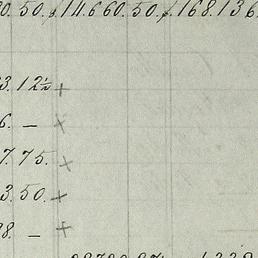 0.50. $14.660.50. $168.136.
3.12½ +
6. — ×
7.75. ×
3.50. +
8. — +